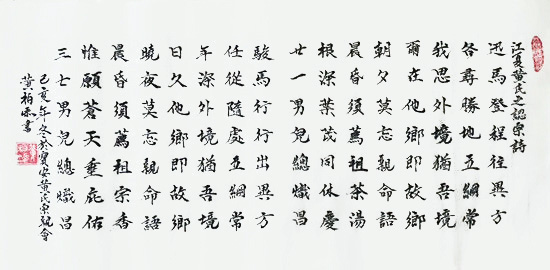 江夏黄氏之認宗詩
迅馬登程往異方
各尋勝地立綱常
我思外境猶吾境
爾在他鄉即故鄉
朝夕莫忘親命語
晨昏須薦祖茶湯
根深葉茂同休慶
廿一男兒總熾昌
駿馬行行出異方
任從隨處立綱常
年深外境猶吾境
日久他鄉即故鄉
曉夜莫忘親命語
晨昏須薦祖宗香
惟願蒼天垂庇佑
三七男兒總熾昌
己亥年冬於寶安黄氏宗親會
黄柏書